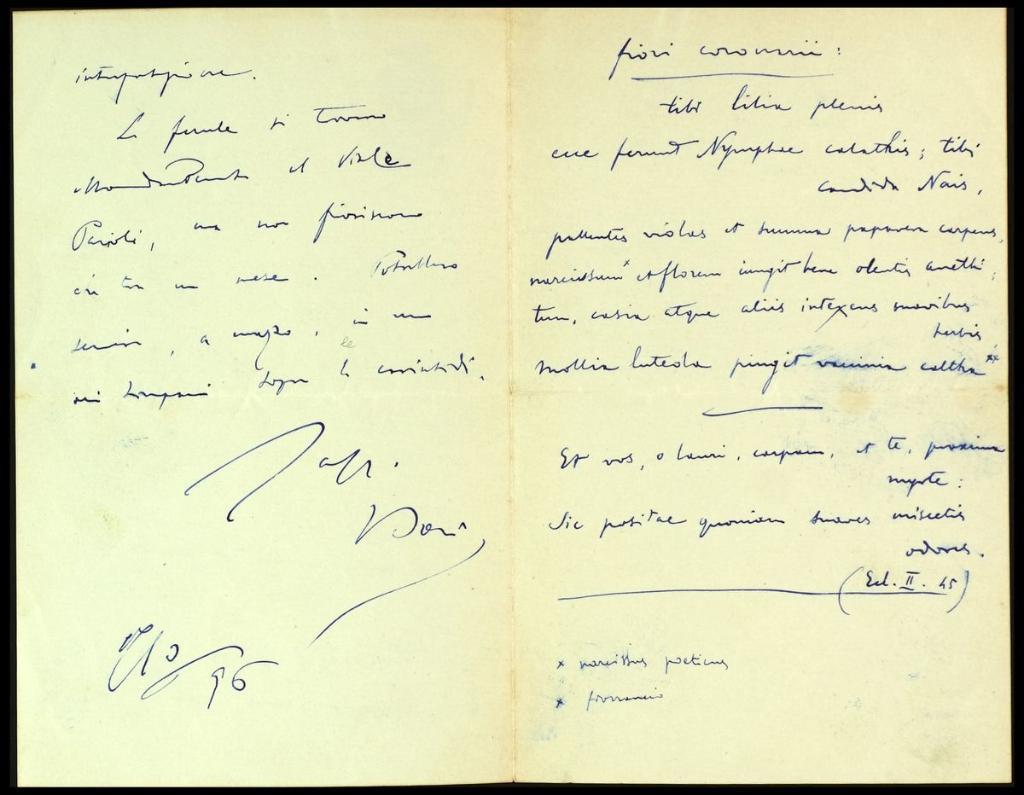 interpretazione.
Le ferule si trovano
al Viale
Parioli, ma non fioriscono
che tra un mese. Potrebbero
servire, a maggio, in un
sopra le
fiori coronarii:
tibi lilia plenis
ecce ferunt Nymphae calathis; tibi
candida Nais,
pallentes violas et summa papavera carpens,
narcissum x et florem iungit bene olentis anethi;
tum, casia atque aliis intexens suavibus
herbis
mollia luteola pingit vaccinia caltha xx
Et vos, o lauri, carpam, et te, proxima
myrte:
sic positae quoniam suaves miscetis
odores.
(Ecl. II. 45)
x narcissus poeticus
x fiorrancio